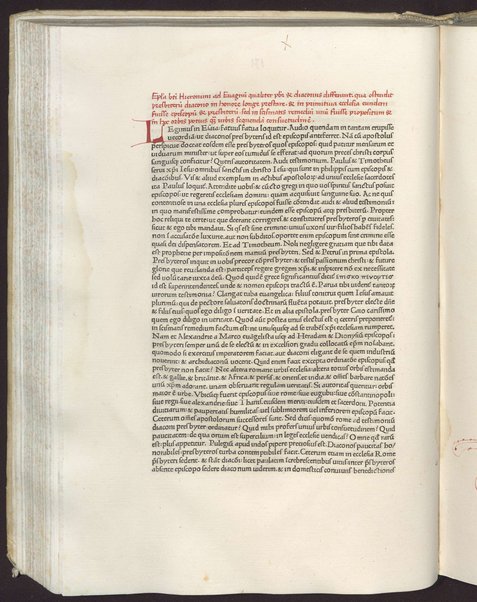 Epła bti Hieronimi ad Euagriū qualiter pbr & diaconus differunt. qua ostendit
presbiterū diacono in honore longe prestare. & in primitiua ecclesia eundem
fuisse episcopū & presbiterū. sed in scismatis remediū unū fuisse propositum &
in hac orbis potius q̄ urbis sequendā consuetudinē.
LEgimus in Esaia. fatuus fatua loquitur. Audio quendam in tantam erupisse
uecordiā. ut diaconos presbyteris id est episcopis anteferret. Nā cū apostolus
perspicue doceat eosdem esse presbyteros quos episcopos. quid patitur mensarum et
uiduarum minister ut super eos tumidus se efferat. ad quorum preces christi corpus
sanguisq; conficitur? Quęris autoritatem? Audi testimonium. Paulus & Timotheus
serui xp̄i Iesu omnibus sanctis in christo Iesu qui sunt in philippis cum episcopis &
diaconibus. Vis & aliud exemplum? in actibus apostoloꝝ ad unius ecclesię sacerdotes
ita Paulus loquit. Attendite uobis & cūcto gregi in quo uos spiritus sanctus posuit
episcopos. ut regeretis ecclesiam domini quam acquisiuit sanguine suo. Ac ne quis
contentiose in una ecclesia plures episcopos fuisse cōtendat. audi & aliud testimoniū
in quo manifestissime comprobatur eundem esse episcopū atq; presbiterū. Propter
hoc reliqui te creteę ut quę deerant corrigeres & constitueres presbyteros p ciuitates
sicut & ego tibi mandaui. Si qs est sine crimine. unius uxoris uir. filios habēs fideles
non ī accusatiōe luxurię. aut non subditos. oportet enim episcopum sine crimine esse
quasi dei dispensatorem. Et ad Timotheum. Noli negligere gratiam quę tibi data
est prophetię per impositionem manuum presbyteri. Sed & Petrus in prima epistola
Presbyteros inquit in uobis precor cōpresbyter. & testis passionum christi. & futurę
glorię quę reuelanda est particeps. regere gregem xp̄i. & inspicere nō ex necessitate
sed uoluntarie iuxta deū. Quod quidē gręce significantius dicit
id est superintendentes. unde & nomen episcopi tractū ē. Parua tibi uident tantoꝝ
uirorum testimonia? Clangat tuba euangelica. filius tonitrui quem Iesus amauit
plurimū. qui de pectore saluatoris doctrinarū fluēta potauit. presbyter electę dn̄ę
& filiis eius quos ego diligo ī ueritate. Et in alia epistola. presbyter Caio carissimo
quem ego diligo in ueritate. Quod autē postea unus electus est qui ceteris preponeret.
in scismatis remedium factum est. ne unusquisq; ad se trahēs xp̄i ecclesiam rumperet.
Nam et Alexandrię a Marco euāgelista usq; ad Heradam & Dionysiū episcopos.
presbyteri semper unū de se electū & in excelsiori gradu collocatū ep̄m noīabant.
quomodo si exercitus imperatorem faciat. aut diaconi elegant de se quem industriū
nouerint. & archidiaconū uocent. Quid enim facit excepta ordinatiōe episcopus. qd̄
presbyter non faciat? Nec altera romanę urbis ecclesia. altera totius orbis estimanda
est. & gallię. & britānię. & Africa. & persis. & oriens. et india. & omēs barbarę natiōes
unū xp̄m adorant. unam obseruant regulam ueritatis. Si autoritas queritur orbis
maior ē urbe. Vbicūq; fuerit episcopus siue romę. siue eugubii. siue cōstantinopoli.
siue regii. siue alexandrię. siue Thanis. eiusdem meriti eiusdem et sacerdotii. Potentia
diuitiarum & paupertatis humilitas. uel sublimiorem uel inferiorem episcopū facit.
Ceterum omēs apostolorum successores sunt. Sed dicis. quomō romę ad testimoniū
diaconi presbyter ordinatur? Quid mihi profers unius urbis consuetudinem? Quid
paucitatem de qua ortum est supercilium. ī leges ecclesię uendicas? Omne qd̄ rarū
est. plus appetitur. Pulegiū apud indos pipere preciosius est. Diaconos paucitas ho/
norabiles. presbyteros turba contemptibiles facit. Ceterum etiam in ecclesia Romę
p̄sbyteri sedent. & stāt diacōi. licet paulatim increbrescentibus uitiis inter p̄sbyteros
absente episcopo sedere diaconum uiderim. & in domesticis conuiuiis benedictiones